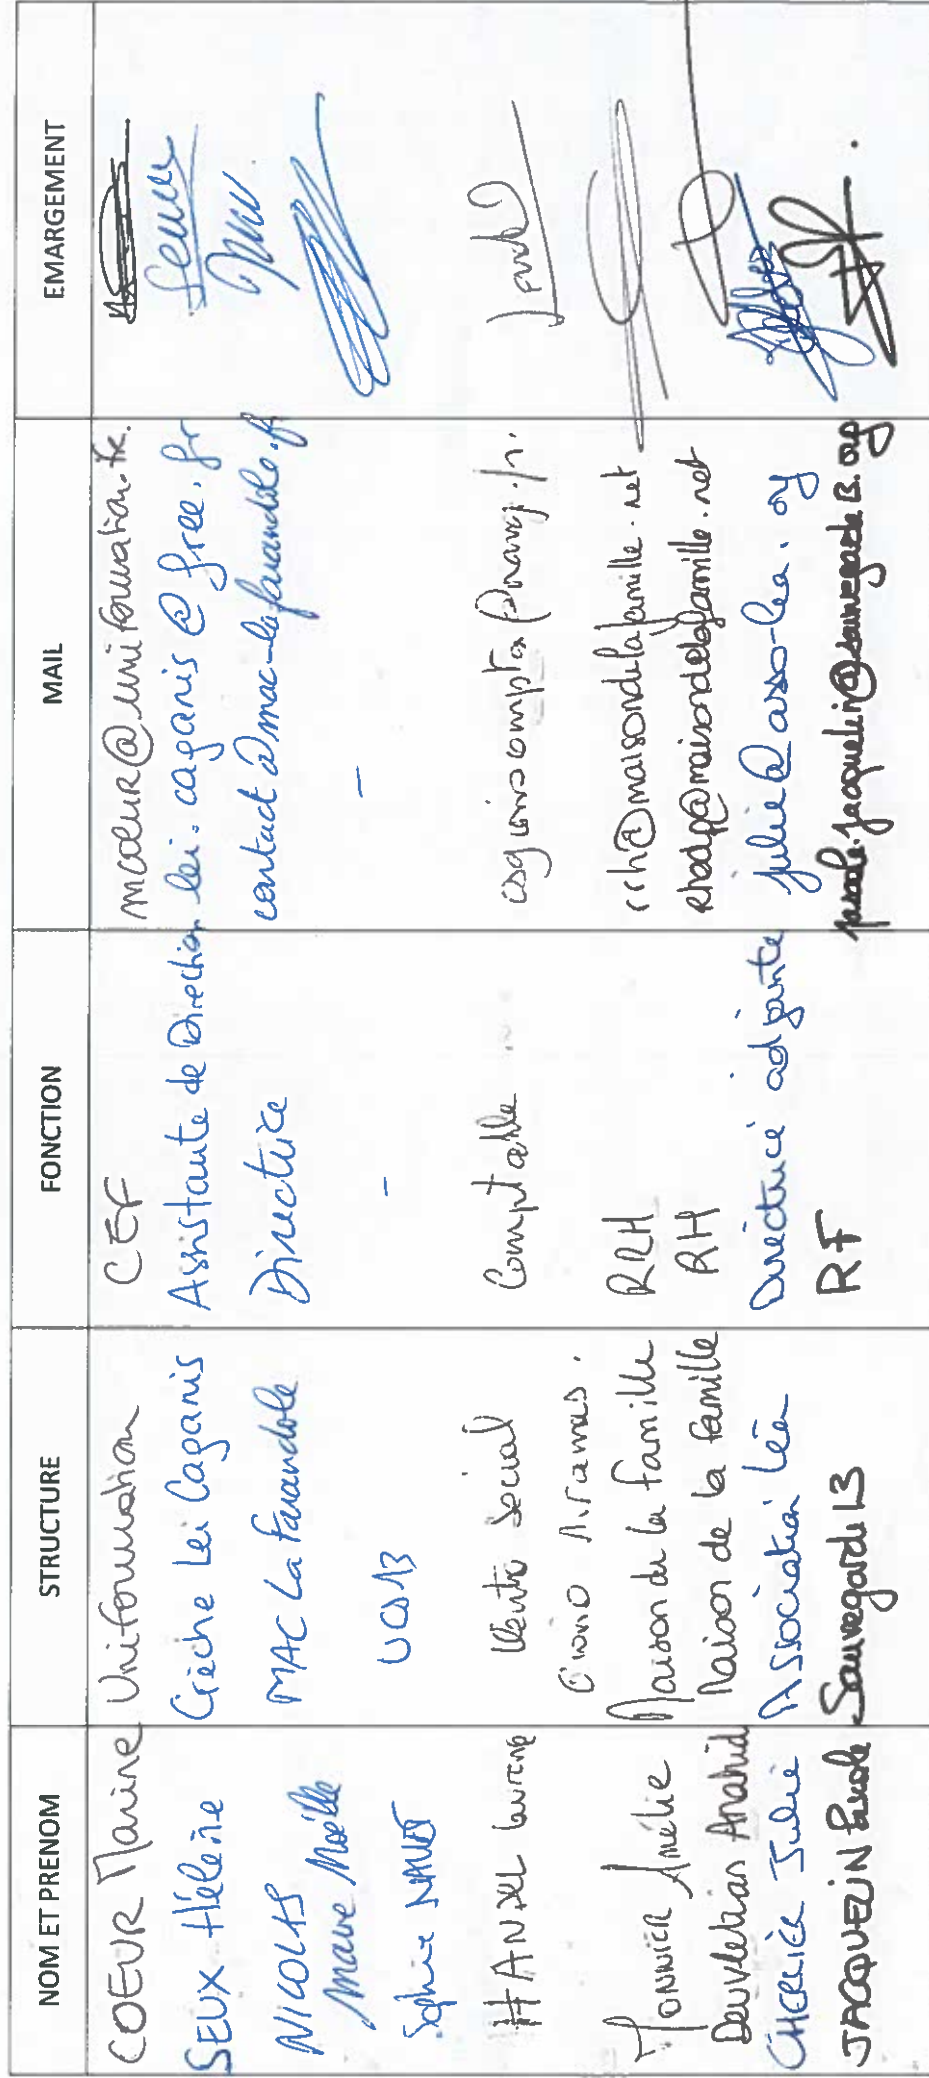 NOM ET PRENOM STRUCTURE FONCTION MAIL EMARGEMENT
COEUR Marine Uniformation CEF mcoeur@uniformation.fr.
SEUX Hélène Crèche Lei Caganis Assistante de Direction lei.caganis@free.fr
NICOLAS MAC La Farandole Directrice contact@mac-lafarandole.fr
Marie Noëlle
Sophie UCS13 - -
HANDEL Social Comptable
Miramas.
MONNIER Amélie Maison de la famille RRH rrh@maisondelafamille.net
Devletian Anahid Maison de la famille RH rhadp@maisondelafamille.net
CHERIER Julie Association Léa Directrice adjointe julie@asso-lea.org
JACQUELIN Pascale Sauvegarde 13 RF pascale.jacquelin@sauvegarde13.org